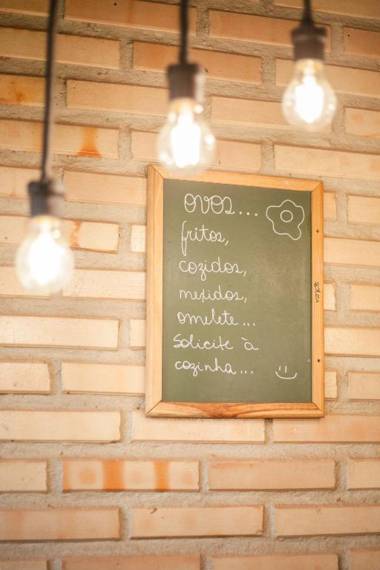 OVOS...
fritos,
cozidos,
mexidos,
omelete...
Solicite à
cozinha...